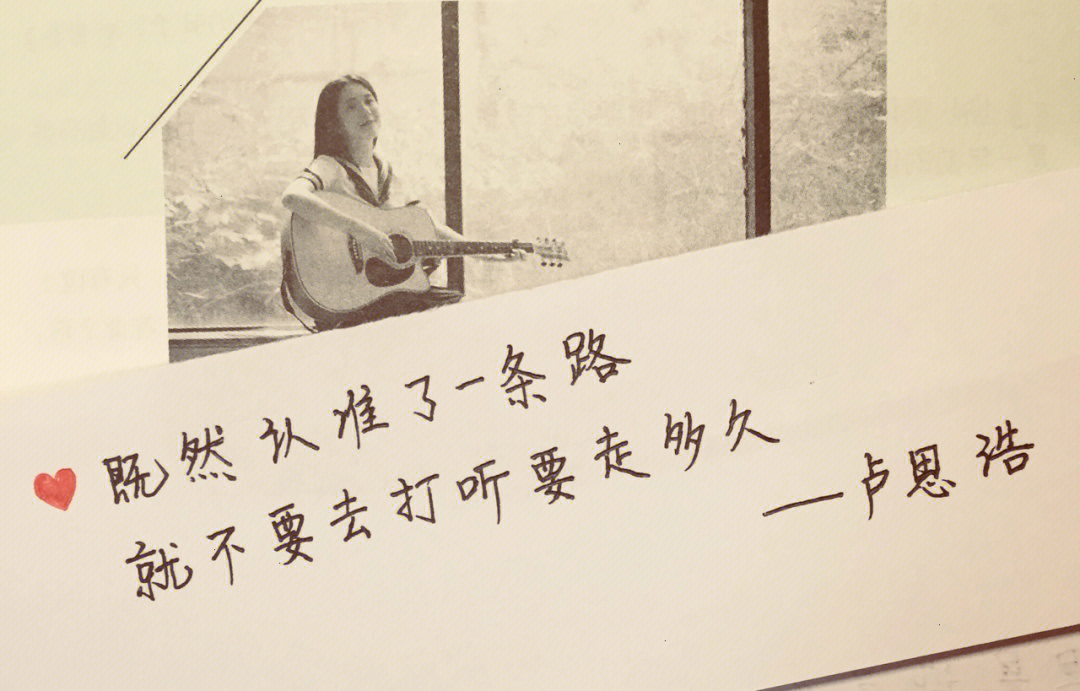 既然认准了一条路
就不要去打听要走多久
——卢思浩